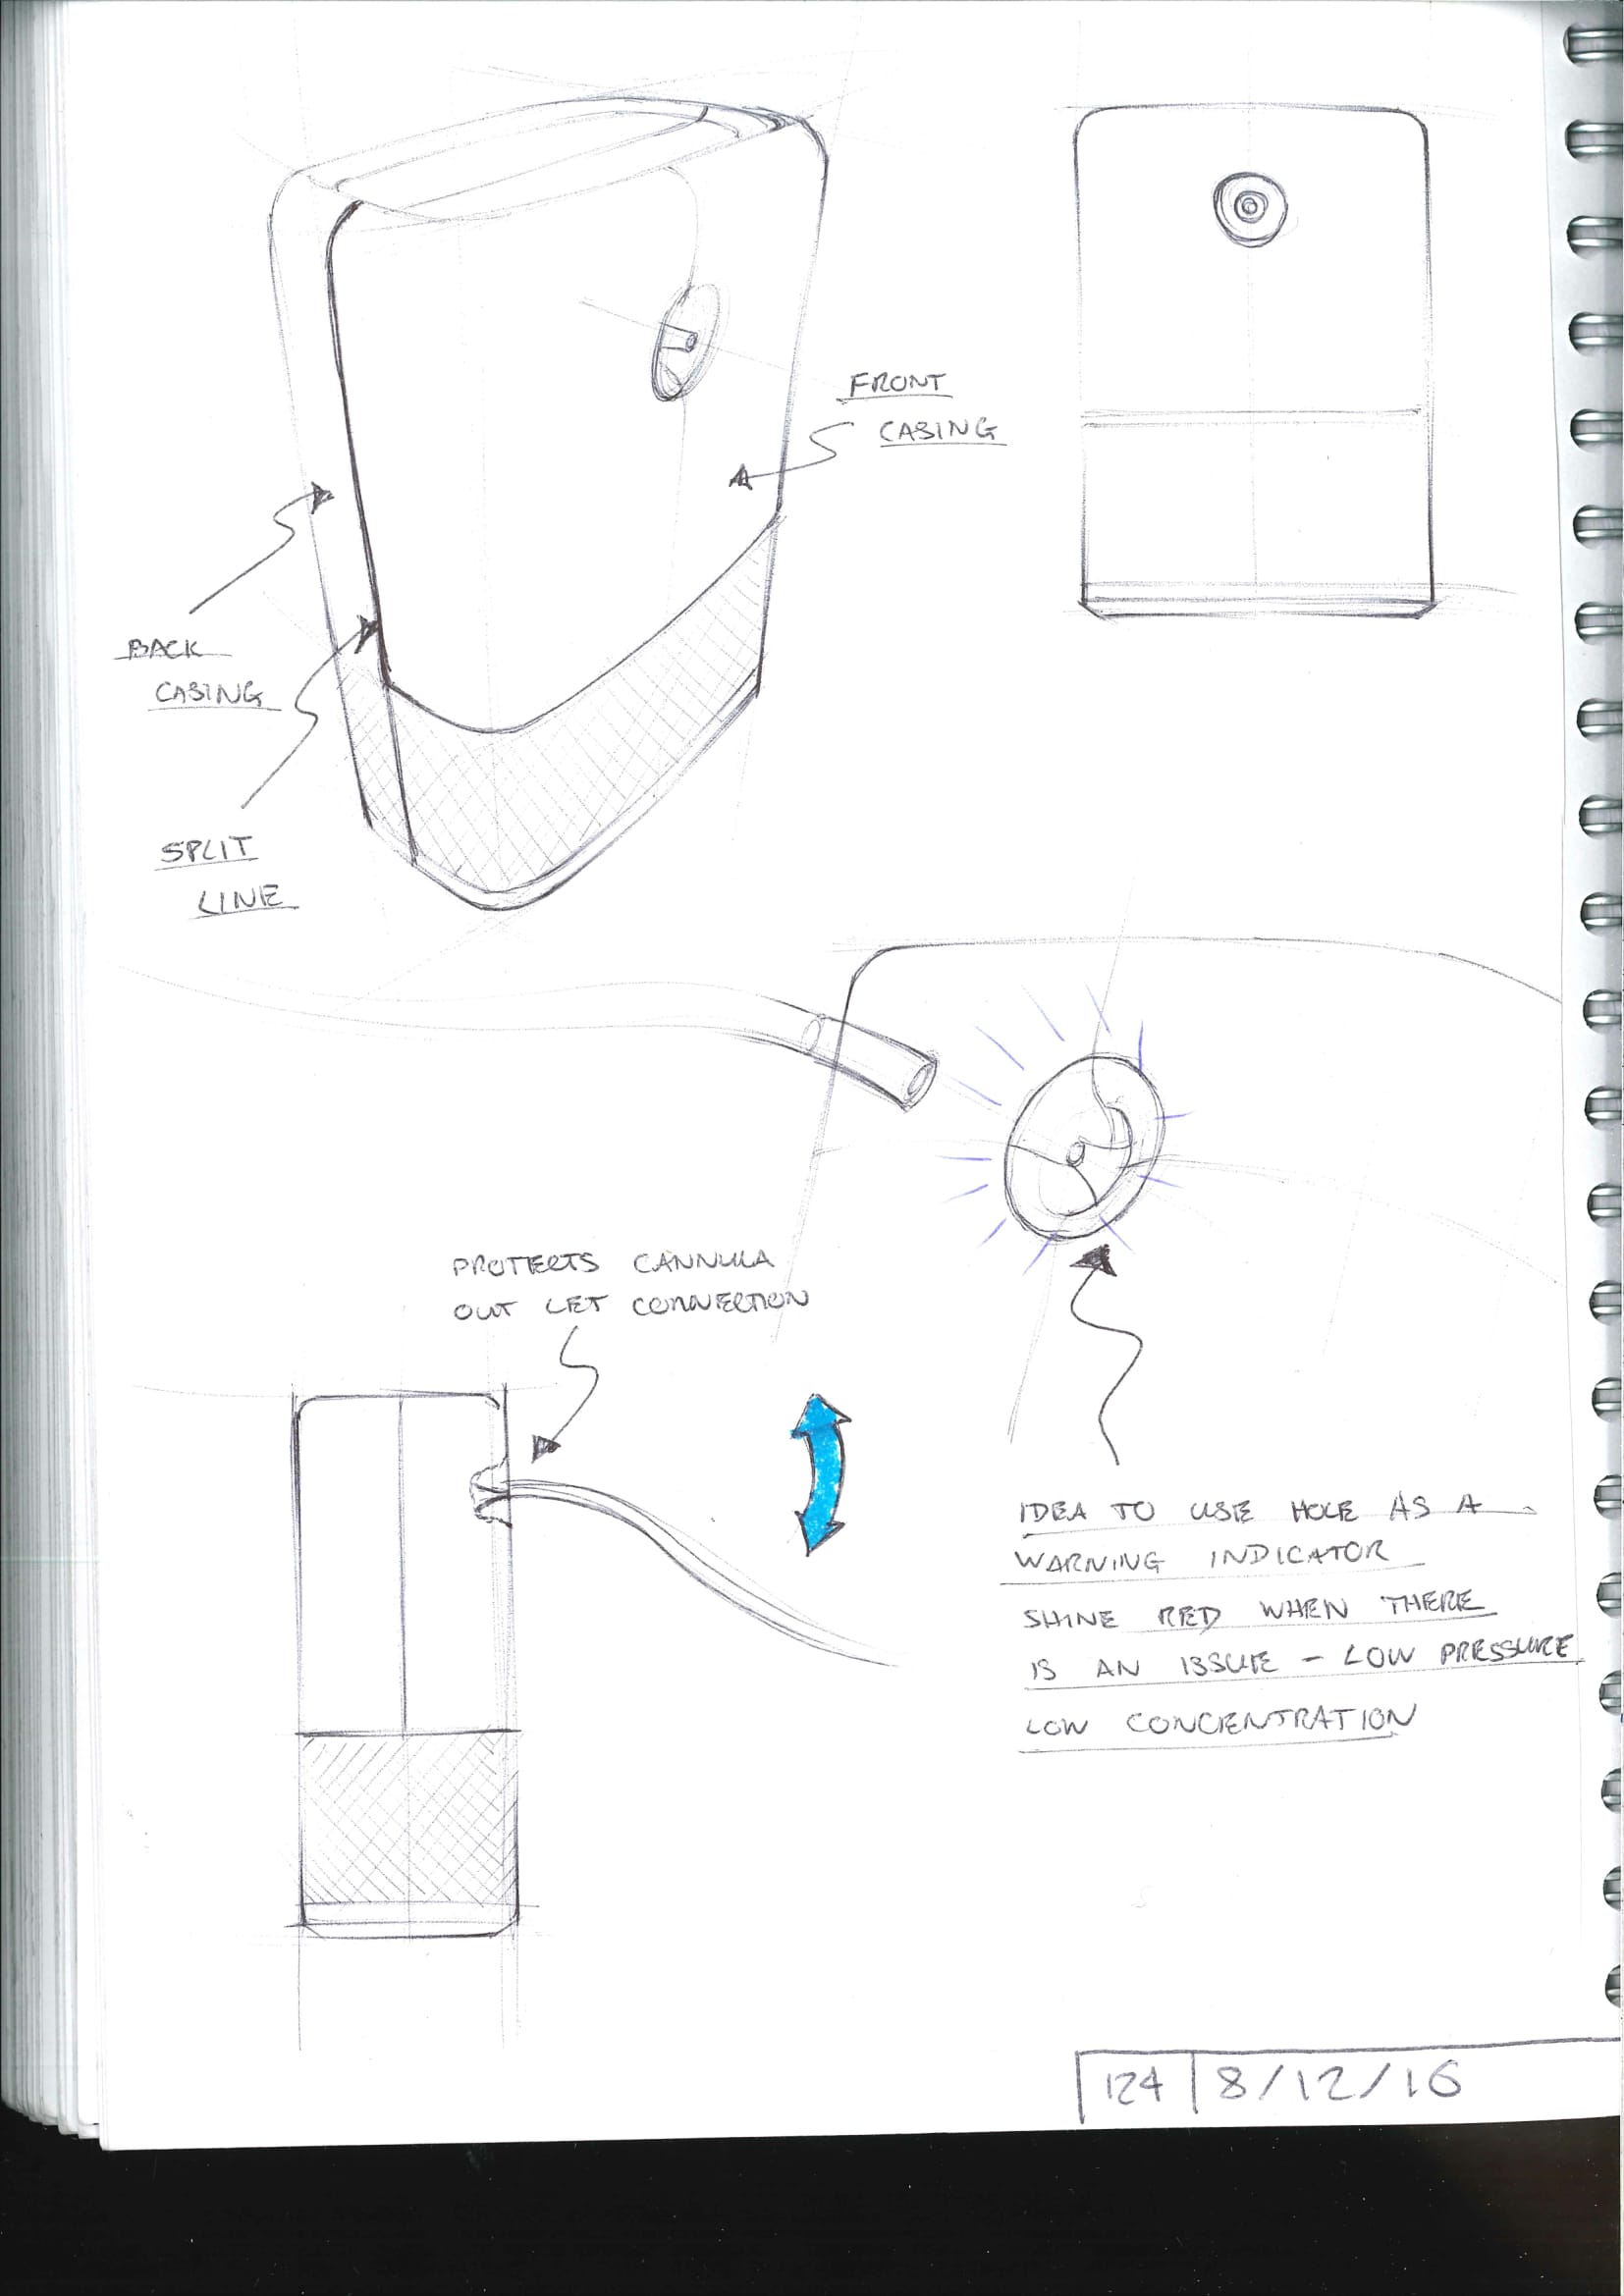 FRONT
CASING
BACK
CASING
SPLIT
LINE
PROTECTS CANNULA
OUT LET CONNECTION
IDEA TO USE HOLE AS A
WARNING INDICATOR
SHINE RED WHEN THERE
IS AN ISSUE - LOW PRESSURE
LOW CONCENTRATION
124 8/12/16